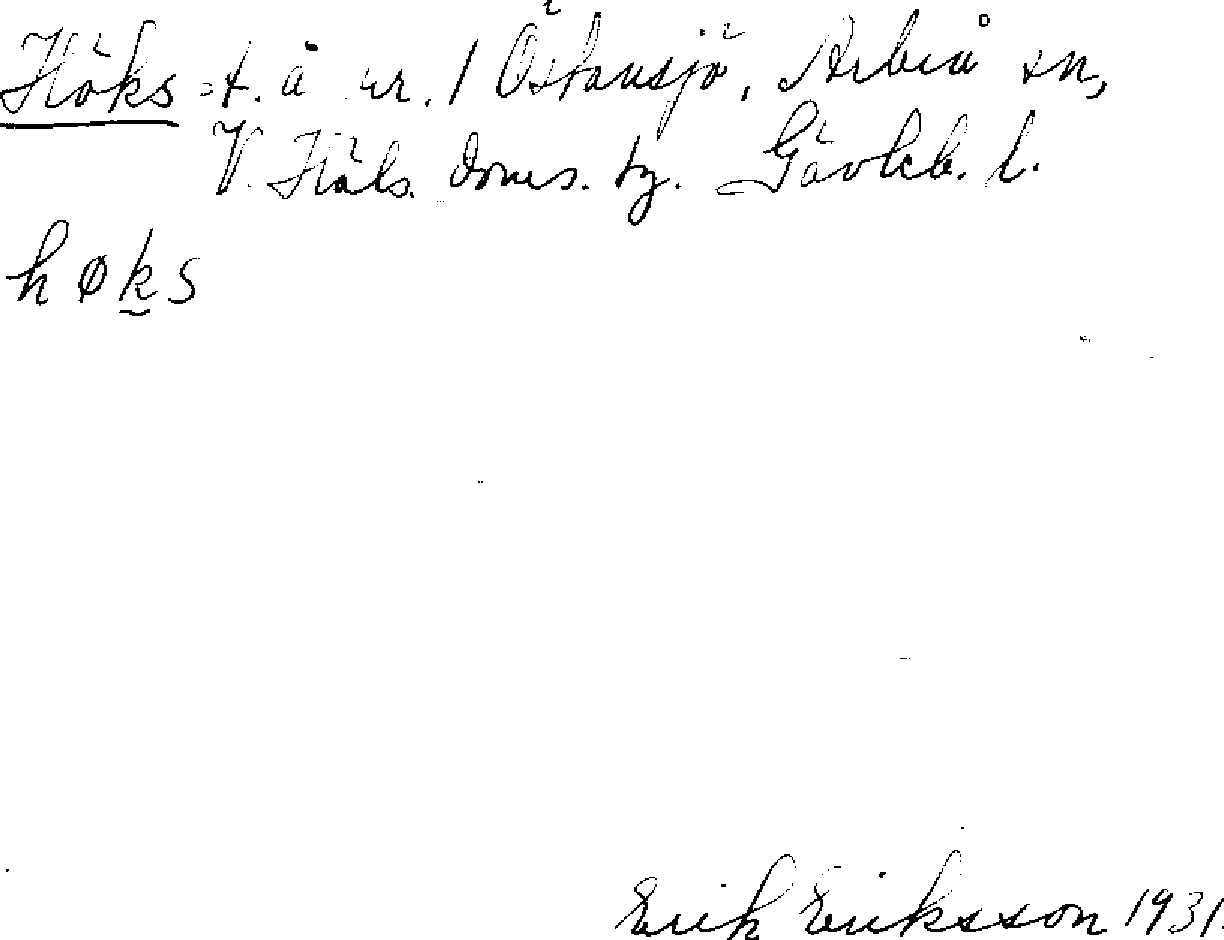 Höks t. å nr. 1 Östansjö, Arbrå sn,
V. Häls. doms. tg. Gävleb. l.
høks
Erik Eriksson 1931.